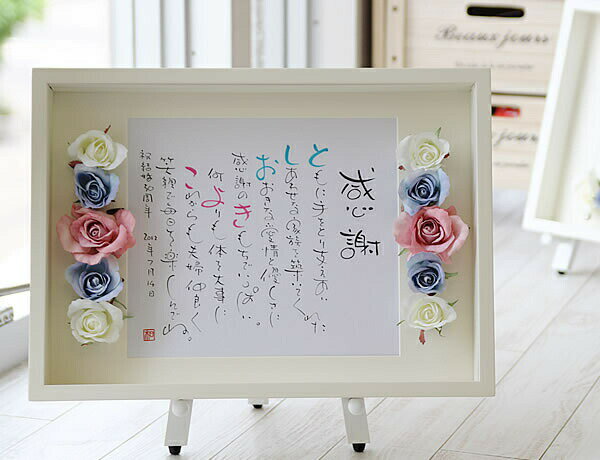 感謝
ともに手をとり支えあい
しあわせな家族を築いてくれた
おおきな愛情と優しさに
感謝のきもちでいっぱい。
何よりも体を大事に
これからも夫婦仲良く
笑顔で毎日を楽しんでね。
祝結婚30周年 2012年7月14日
Beaux jours